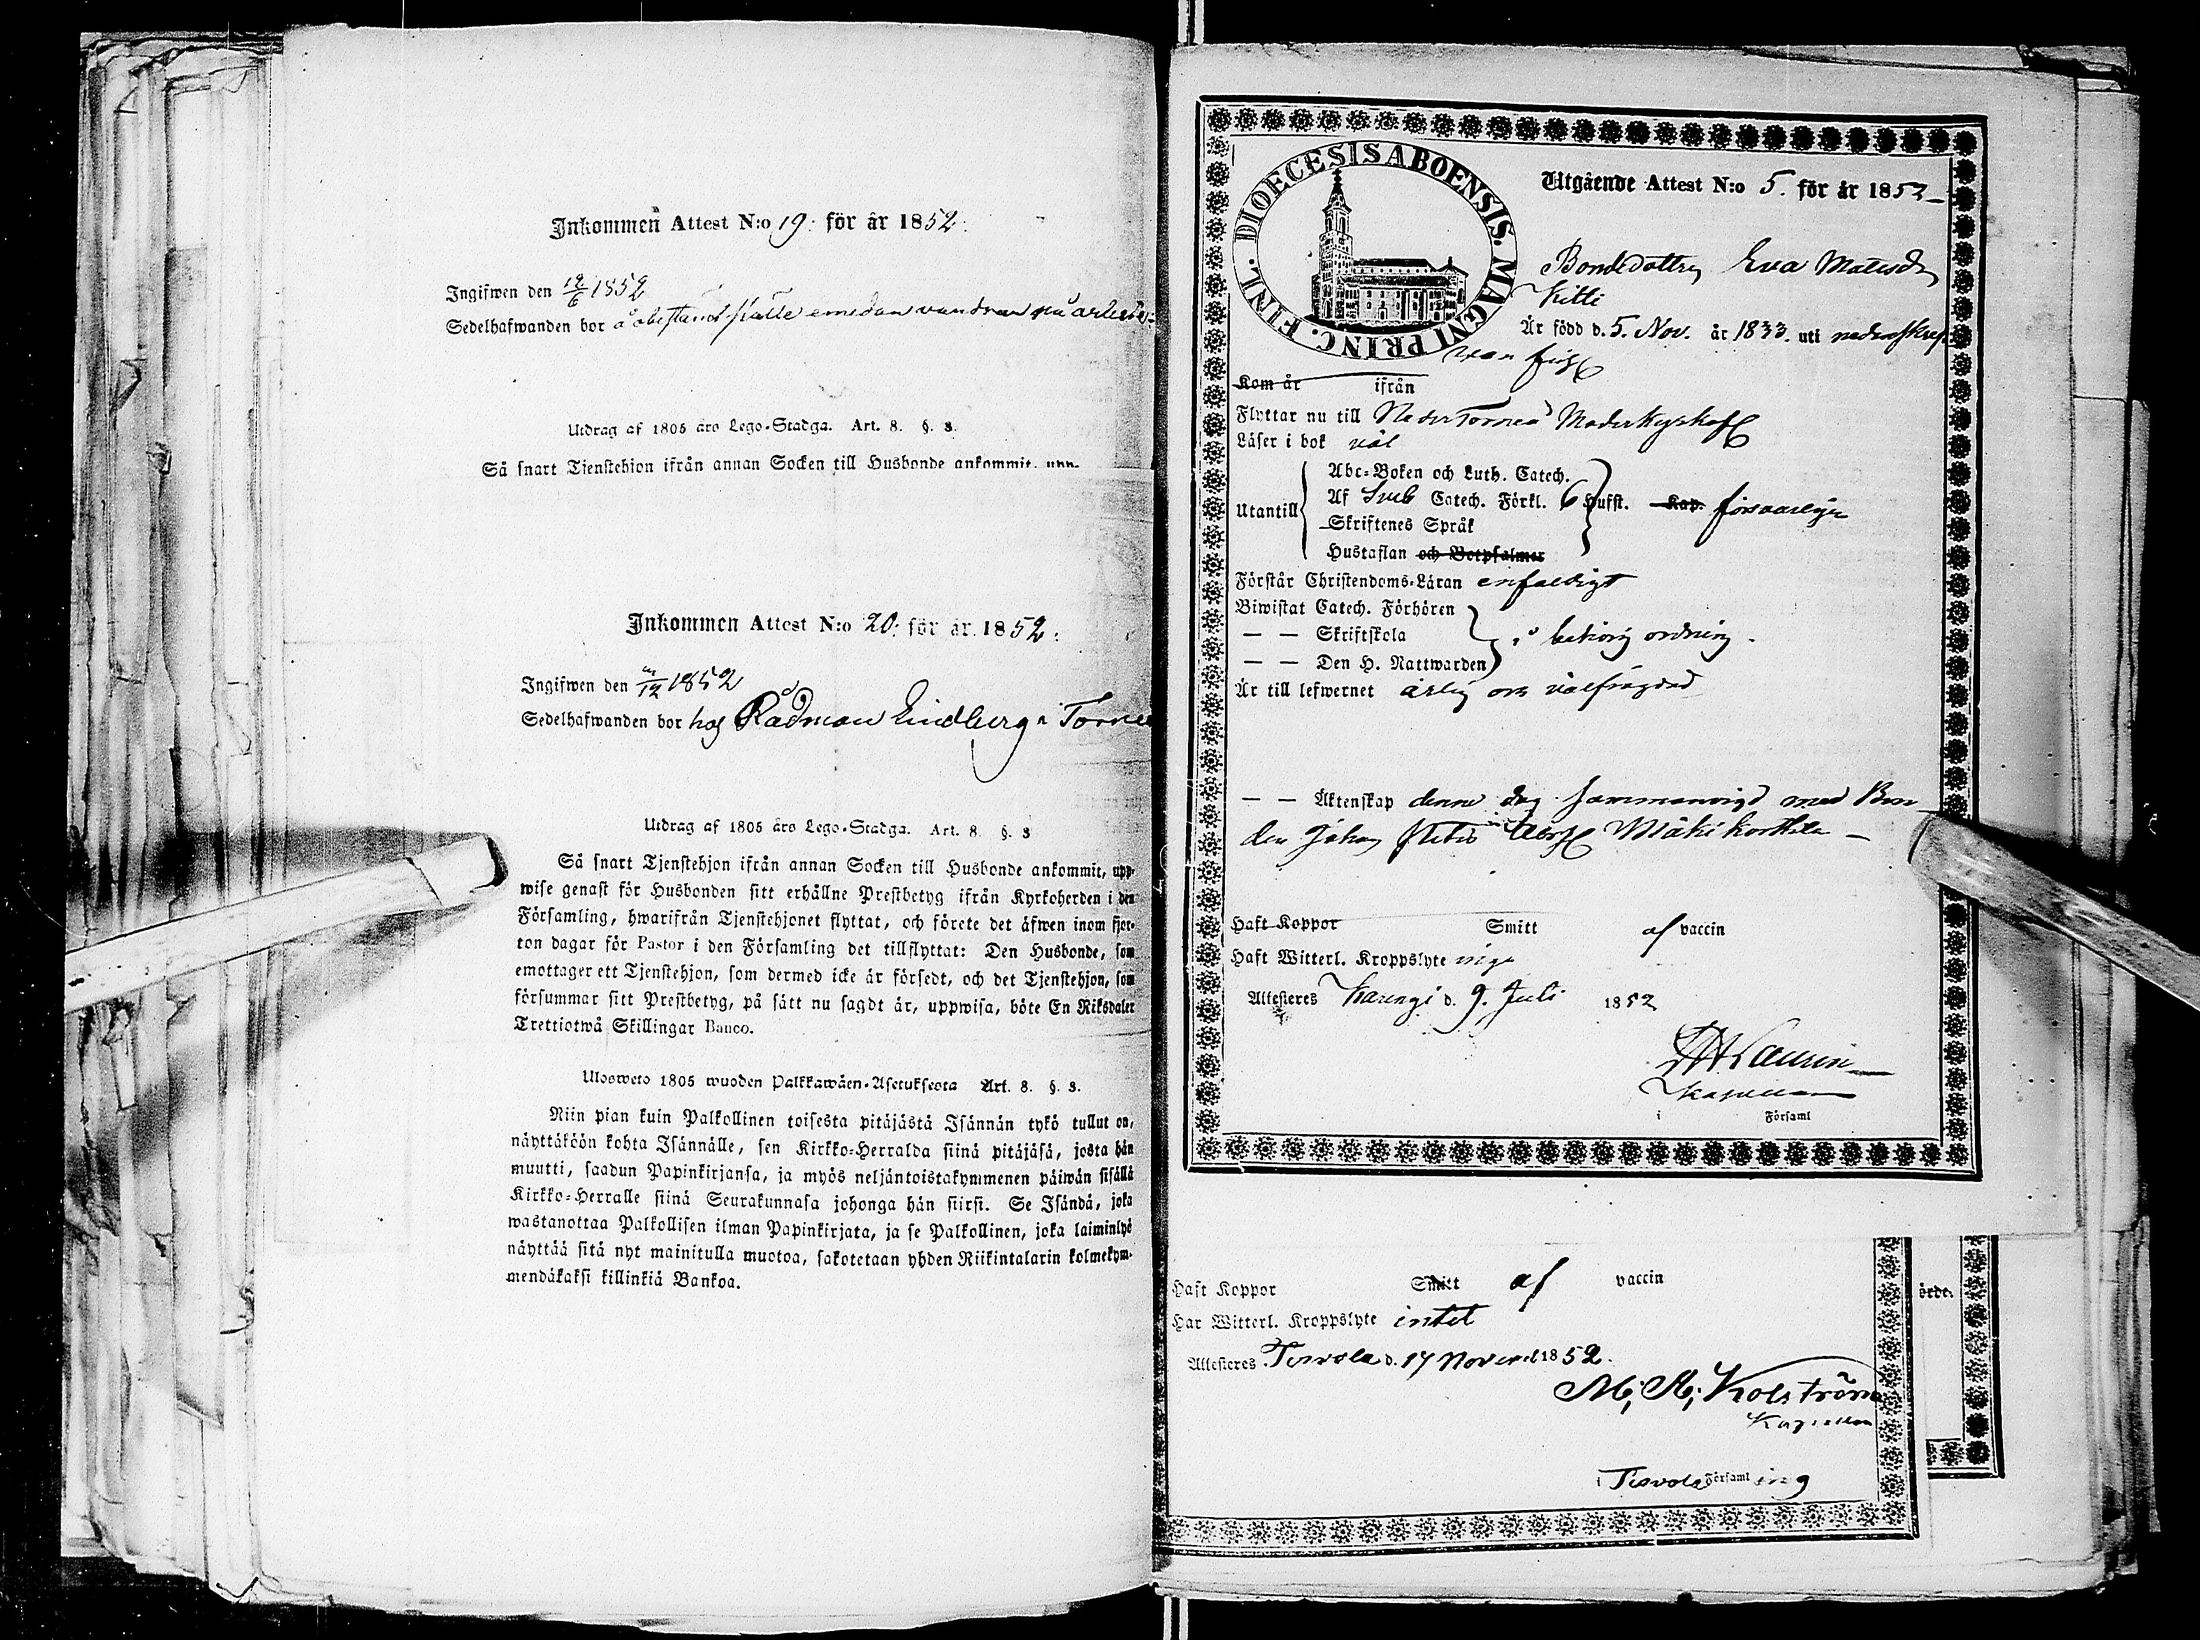 Inkommen Attest N:o 19. för år 1852.
Ingifwen den 12/6 1852
Sedelhafwanden bor å obestämdt ställe emedan vandrar på arbete
Utdrag af 1805 års Lego-Stadga. Art. 8. §. 3.
Så snart Tjenstehjon ifrån annan Socken till Husbonde ankommit, upp-
Inkommen Attest N:o 20. för år 1852.
Ingifwen den /12 1852
Sedelhafwanden bor hos Rådman Lindberg i Torneå
Utdrag af 1805 års Lego-Stadga. Art. 8. §. 3
Så snart Tjenstehjon ifrån annan Socken till Husbonde ankommit, upp-
wise genast för Husbonden sitt erhållne Prestbetyg ifrån Kyrkoherden i den
Församling, hwarifrån Tjenstehjonet flyttat, och förete det äfwen inom fjor-
ton dagar för Pastor i den Församling det tillflyttat: Den Husbonde, som
emottager ett Tjenstehjon, som dermed icke är försedt, och det Tjenstehjon, som
försummar sitt Prestbetyg, på sätt nu sagdt är, uppwisa, böte En Riksdaler
Trettiotwå Skillingar Banco.
Ulosweto 1805 wuoden Palkkawäen-Asetuksesta Art. 8. §. 3.
Niin pian kuin Palkollinen toisesta pitäjästä Isännän tykö tullut on,
näyttäköön kohta Isännälle, sen Kirkko-Herralda siinä pitäjäsä, josta hän
muutti, saadun Papinkirjansa, ja myös neljäntoistakymmenen päiwän sisällä
Kirkko-Herralle siinä Seurakunnasa johonga hän siirsi. Se Isändä, joka
wastanottaa Palkollisen ilman Papinkirjata, ja se Palkollinen, joka laiminlyö
näyttää sitä nyt mainitulla muotoa, sakotetaan yhden Riikintalarin kolmekym-
mendäkaksi killinkiä Bankoa.
FINL. DIOECESIS ABOENSIS. MAGNI PRINC.
Utgående Attest N:o 5. för år 1852
Bondedottren Eva Matsdr
Kitti
Är född d. 5. Nov. år 1833. uti
Kom år ifrån
Flyttar nu till Neder Torneå Moderkyrka
Läser i bok väl
Utantill
Abc-Boken och Luth. Catech.
Af Sveb Catech. Förkl. 6 Hufst. Kap. försvarligen
Skriftenes Språk
Hustaflan och Botpsalmer
Förstår Christendoms-Läran enfaldigt
Biwistat Catech. Förhören
— — Skriftskola i behörig ordning.
— — Den H. Nattwarden
Är till lefwernet ärlig och välfrägdad
— — Äktenskap denna dag sammanvigd med Bon
den Johan Mäkikorttila —
Haft Koppor Smitt af vaccin
Haft Witterl. Kroppslyte inga
Attesteres Karungi d. 9. Juli 1852
Laurin
Kapellan
i Församl
Haft Koppor Smitt af vaccin
Har Witterl. Kroppslyte intet
örde.
Attesteres Tervola d. 17 November 1852.
M; A; Kolström
Kapellan
i Tervola Församling